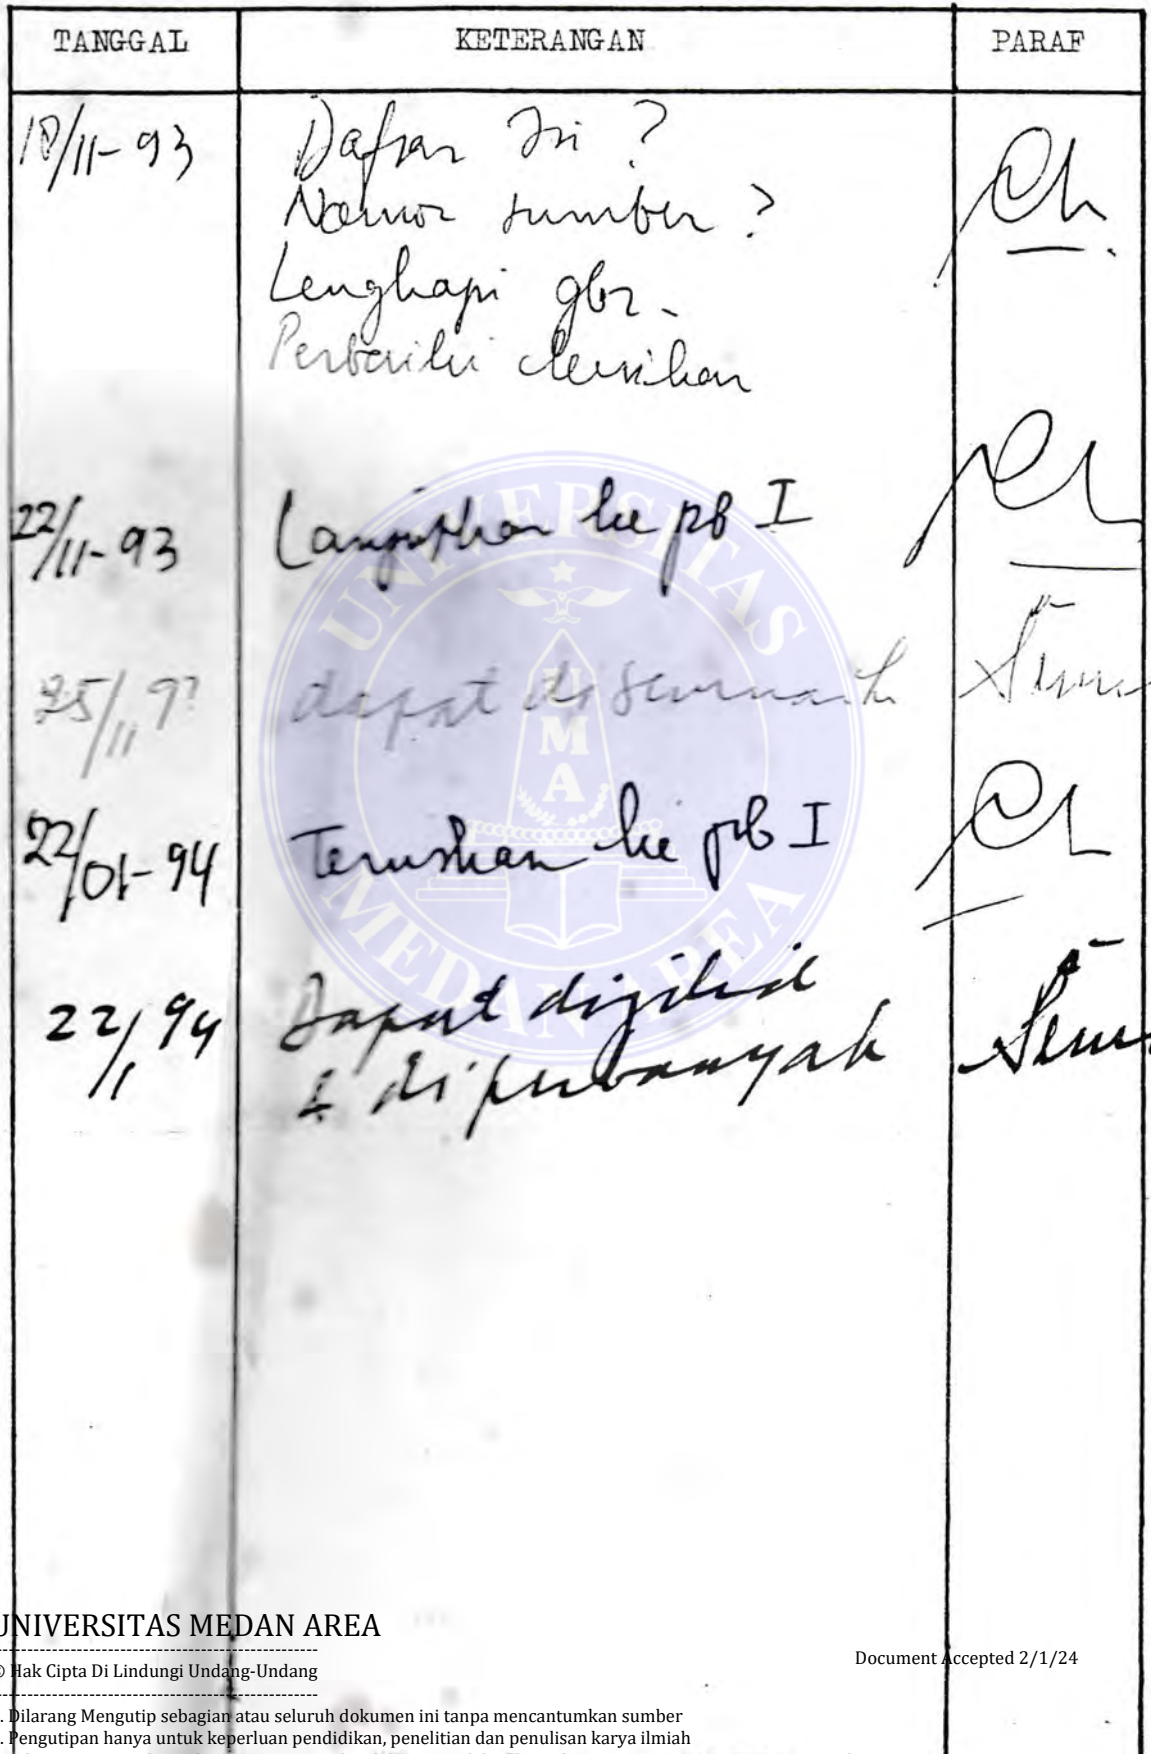 TANGGAL KETERANGAN PARAF
18/11-93 Daftar Isi ?
Nomor sumber ?
Lengkapi gbr.
Perbaiki
22/11-93 Lanjutkan ke pb I
25/11 93 dapat di
22/01-94 Teruskan ke pb I
22/1 94 Dapat dijilid
& diperbanyak
UNIVERSITAS MEDAN AREA
UMA
UNIVERSITAS MEDAN AREA
© Hak Cipta Di Lindungi Undang-Undang
Document Accepted 2/1/24
. Dilarang Mengutip sebagian atau seluruh dokumen ini tanpa mencantumkan sumber
. Pengutipan hanya untuk keperluan pendidikan, penelitian dan penulisan karya ilmiah